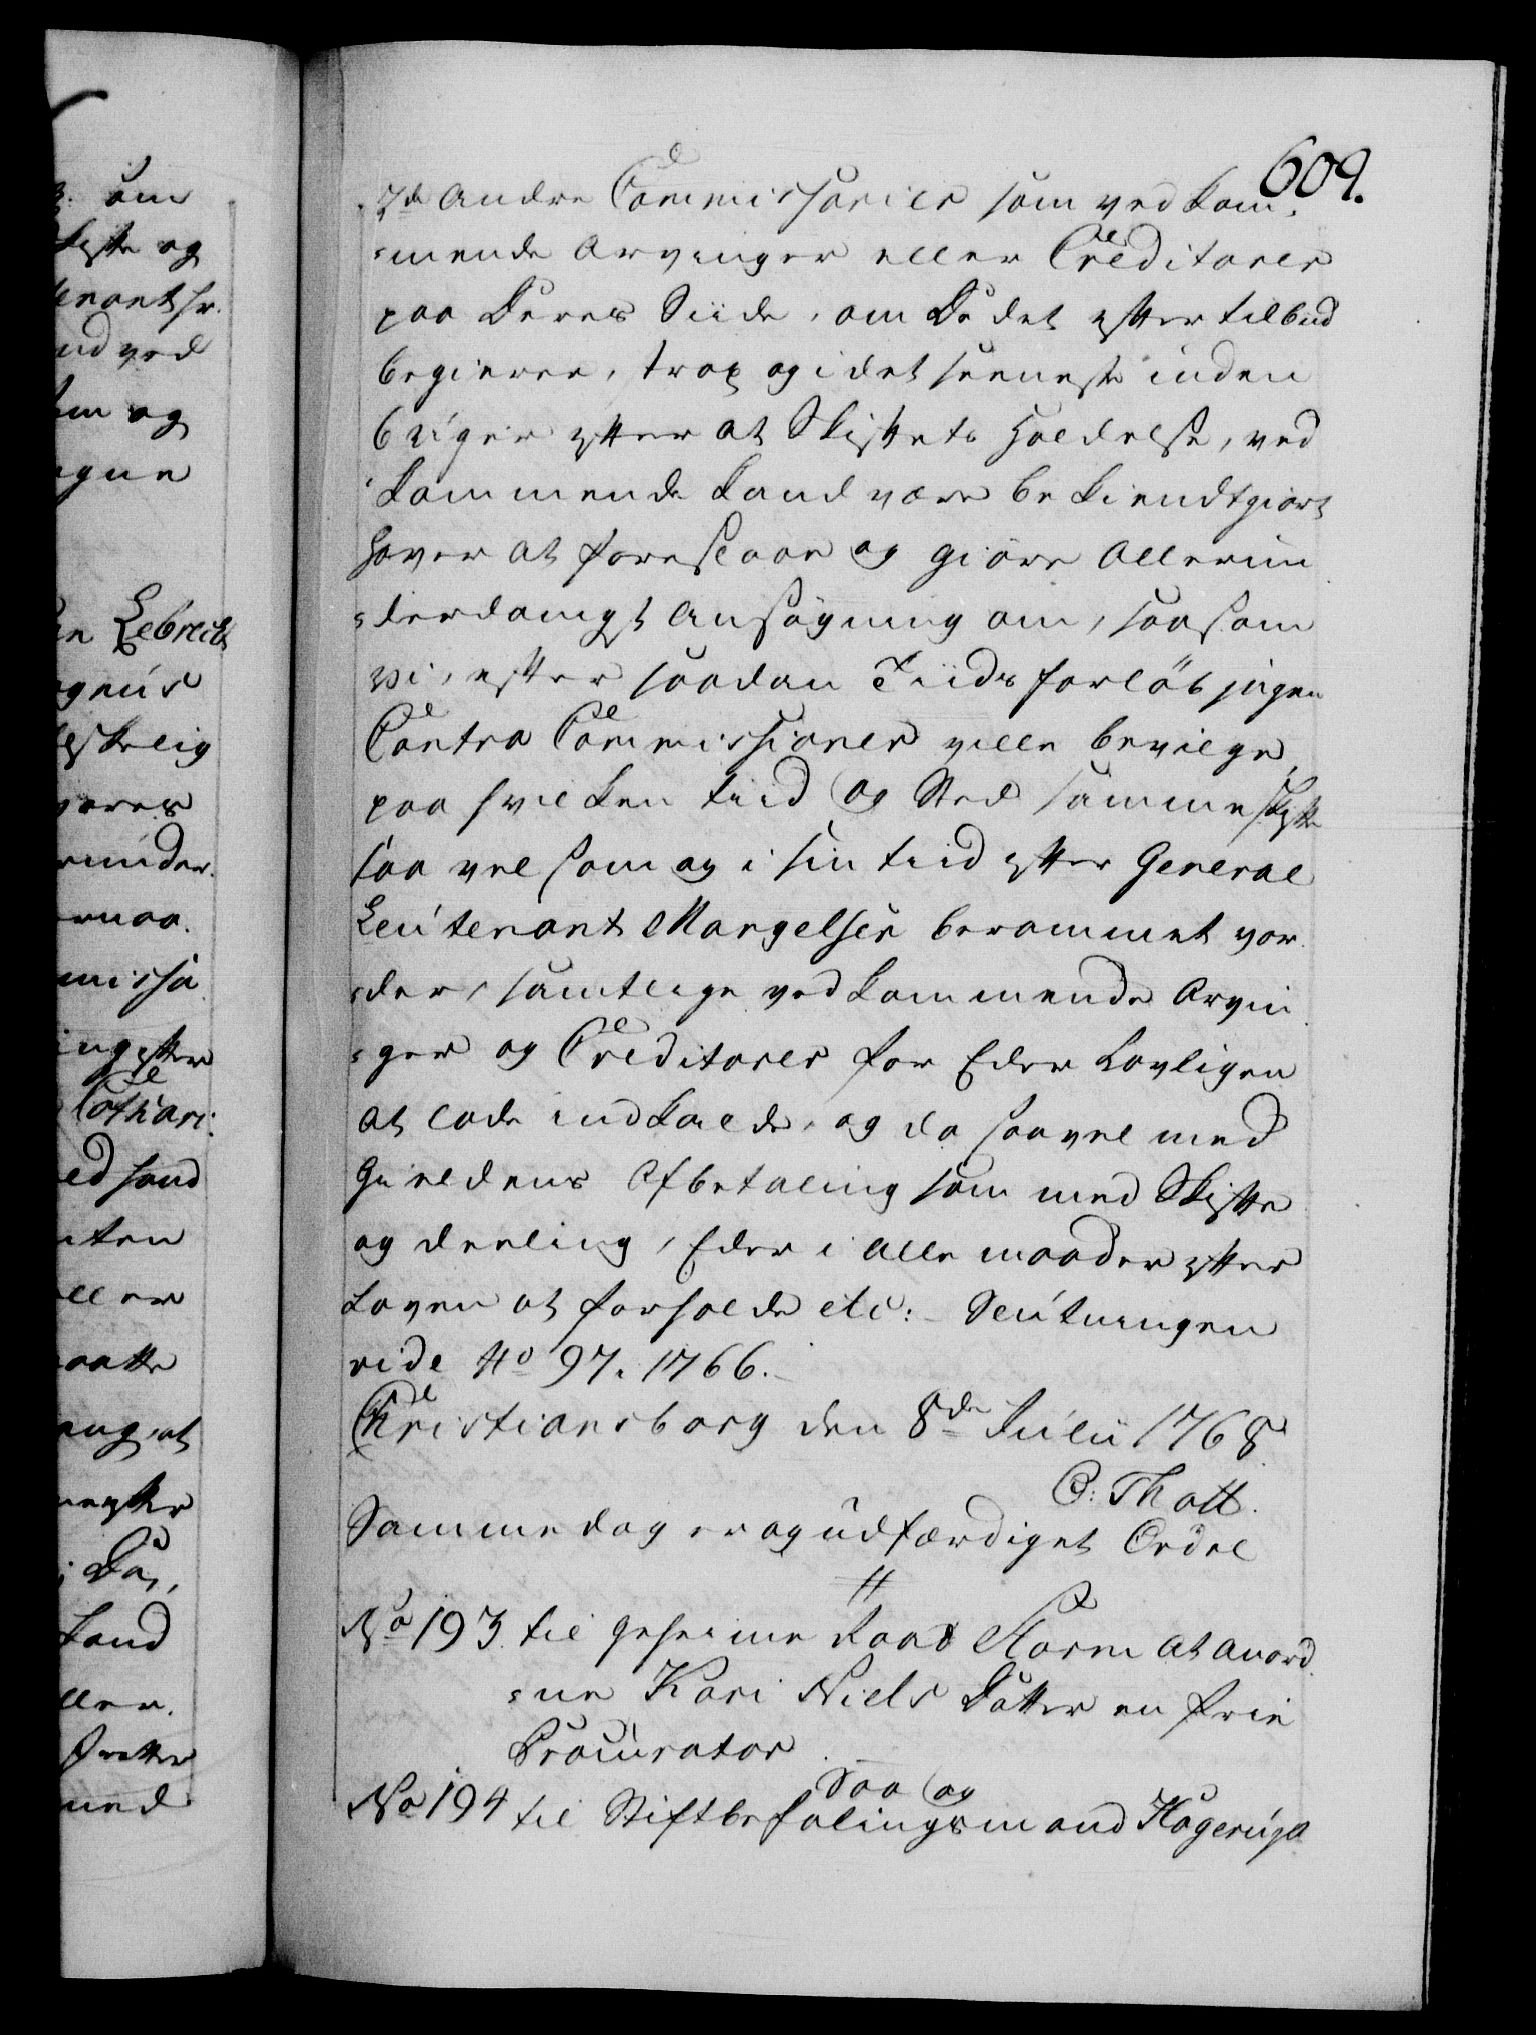 609.
2de andre Commissarier som vedkom-
-mende Arvinger eller Creditorer
paa Deres Siide, om De det efter tilbud
begierer, trax og i det seeneste inden
6 uger efter at Skiftets Holdelse, ved
kommende kand være bekiendtgiort
haver at foreslaae og giöre allerun
-derdanigst Ansögning om, saasom
vi, efter saadan Tiids forlöb ingen
Contra Commissioner ville bevilge,
paa hvilken tiid og Sted samme Skifte
saa vel som og i sin tiid efter General
Leutenant Mangelsen berammet vor
-der, samtlige vedkommende Arvin
-ger og Creditorer for Eder Lovligen
at lade indkalde, og da saavel med
Gieldens Afbetaling som med Skifte
og deeling, Eder i alle maader efter
Loven at forholde etc: Slutningen
vide No 97. 1766.
Christiansborg den 8de Julii 1768
O: Thott.
Samme dag er og udfærdiget Ordre
No 193. til geheime Raad Storm at anord
-ne Kari Niels Datter en frie
Procurator.
Saa og
No 194 til Stiftbefalingsmand Hagerup